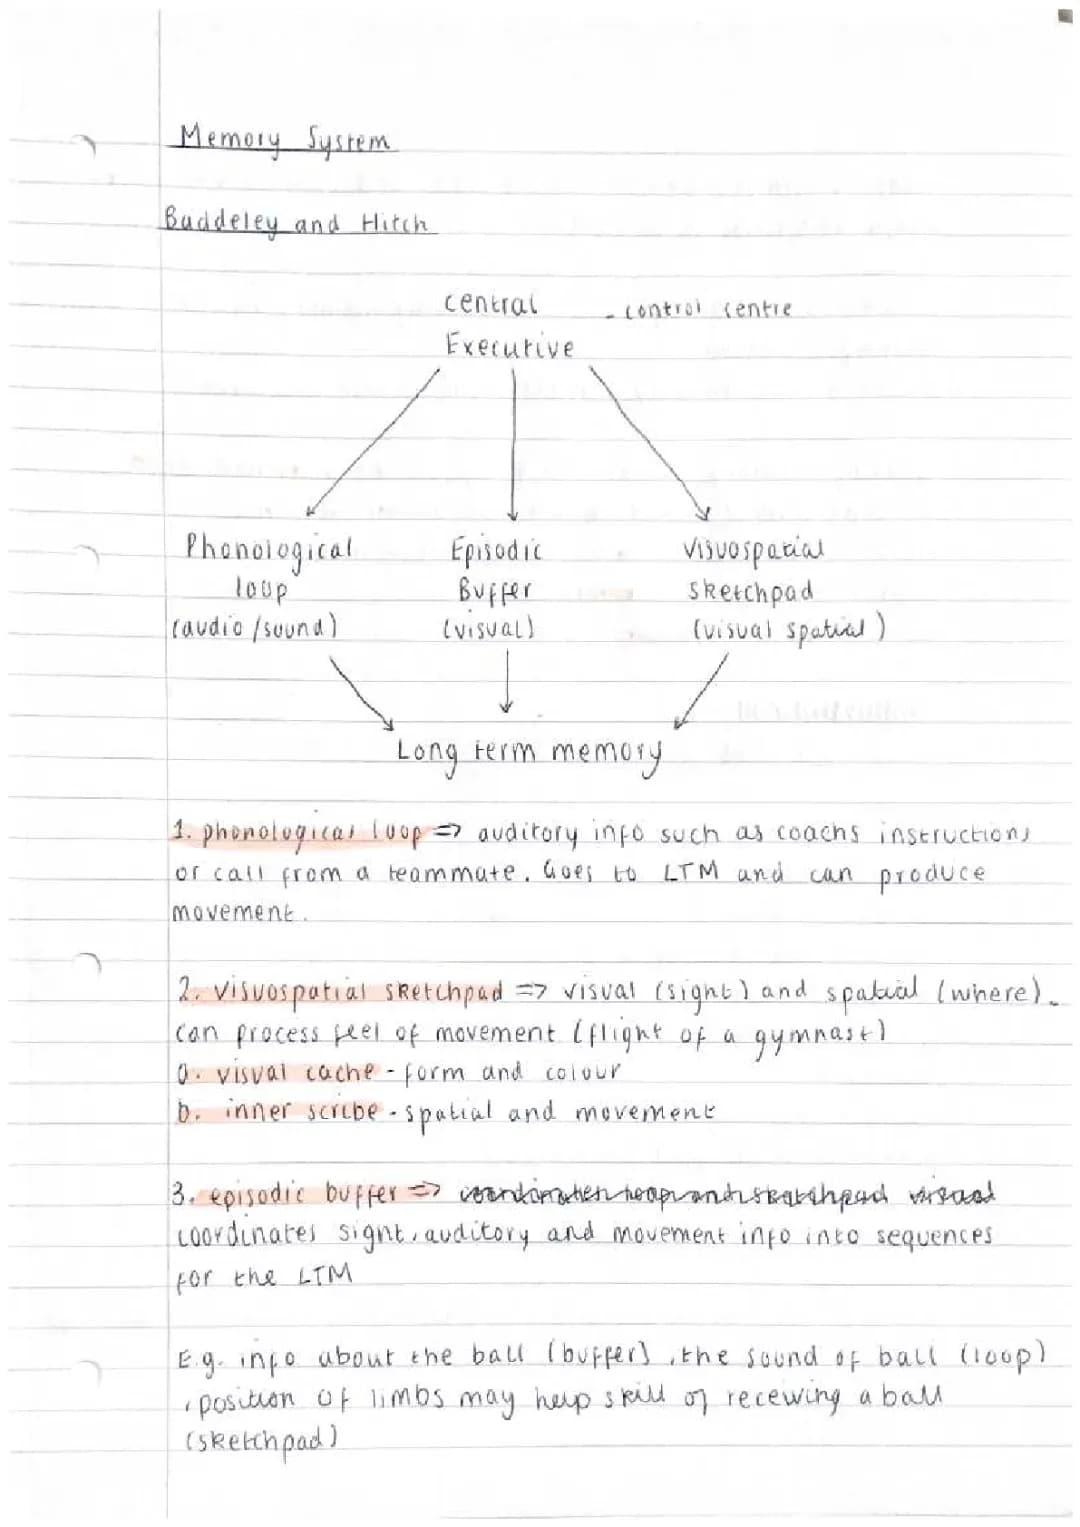 Memory System
Baddeley and Hitch
central - control centre
Executive
Phonological Episodic Visuospatial
loop Buffer sketchpad
(audio/sound) (visual) (visual spatial)
Long term memory
1. phonological loop => auditory info such as coachs instructions
or call from a teammate. Goes to LTM and can produce
movement.
2. visuospatial sketchpad => visual (sight) and spatial (where).
can process feel of movement (flight of a gymnast)
a. visual cache - form and colour
b. inner scribe - spatial and movement
3. episodic buffer =>
coordinates sight, auditory and movement info into sequences
for the LTM
E.g. info about the ball (buffer), the sound of ball (loop)
, position of limbs may help skill of receiving a ball
(sketchpad)